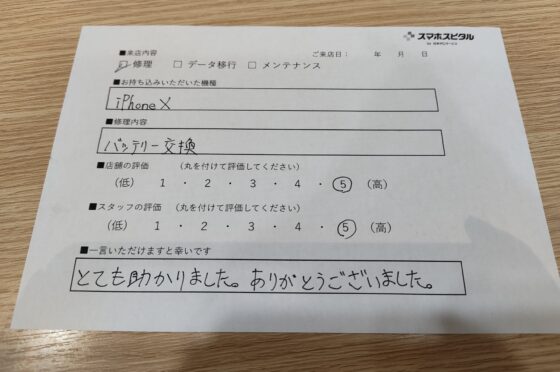 スマホスピタル
■来店内容
ご来店日: 年 月 日
☑修理 □ データ移行 □ メンテナンス
■お持ち込みいただいた機種
iPhone X
■修理内容
バッテリー交換
■店舗の評価 (丸を付けて評価してください)
(低) 1 ・ 2 ・ 3 ・ 4 ・ 5 (高)
■スタッフの評価 (丸を付けて評価してください)
(低) 1 ・ 2 ・ 3 ・ 4 ・ 5 (高)
■一言いただけますと幸いです
とても助かりました。ありがとうございました。